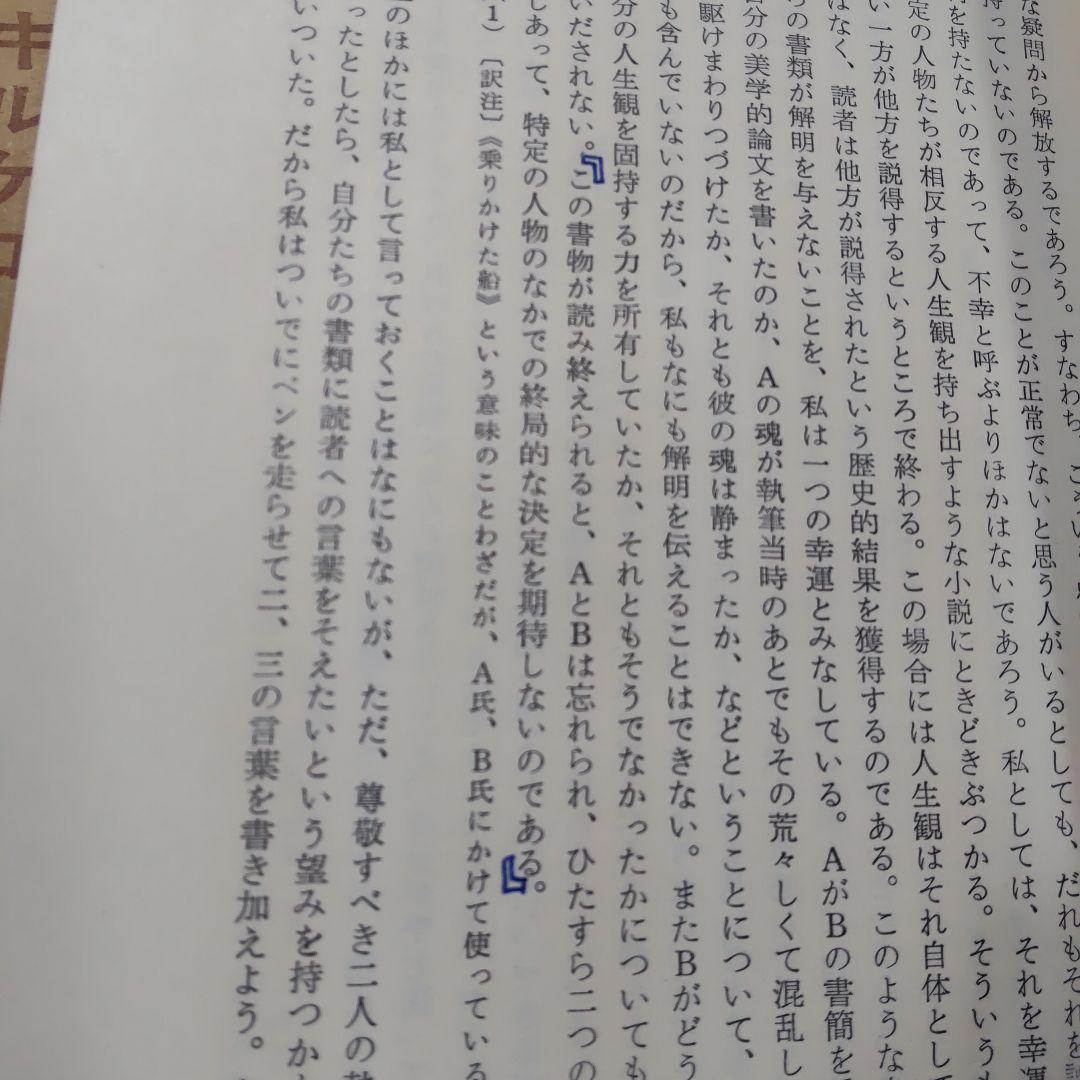 な疑問から解放するであろう。すなわち、
持っていないのである。このことが正常でないと思う人がいるとしても、だれもそれを
を持たないのであって、不幸と呼ぶよりほかはないであろう。私としては、それを幸運
定の人物たちが相反する人生観を持ち出すような小説にときどきぶつかる。そういう
い一方が他方を説得するというところで終わる。この場合には人生観はそれ自体として
はなく、読者は他方が説得されたという歴史的結果を獲得するのである。このような
の書類が解明を与えないことを、私は一つの幸運とみなしている。AがBの書簡を
自分の美学的論文を書いたのか、Aの魂が執筆当時のあとでもその荒々しくて混乱し
駆けまわりつづけたか、それとも彼の魂は静まったか、などということについて、
も含んでいないのだから、私もなにも解明を伝えることはできない。またBがどう
分の人生観を固持する力を所有していたか、それともそうでなかったかについても
いだされない。』この書物が読み終えられると、AとBは忘れられ、ひたすら二つの
しあって、特定の人物のなかでの終局的な決定を期待しないのである。
1)〔訳注〕《乗りかけた船》という意味のことわざだが、A氏、B氏にかけて使っている
のほかには私として言っておくことはなにもないが、ただ、尊敬すべき二人の執
ったとしたら、自分たちの書類に読者への言葉をそえたいという望みを持つか
いついた。だから私はついでにペンを走らせて二、三の言葉を書き加えよう。
キルケゴ